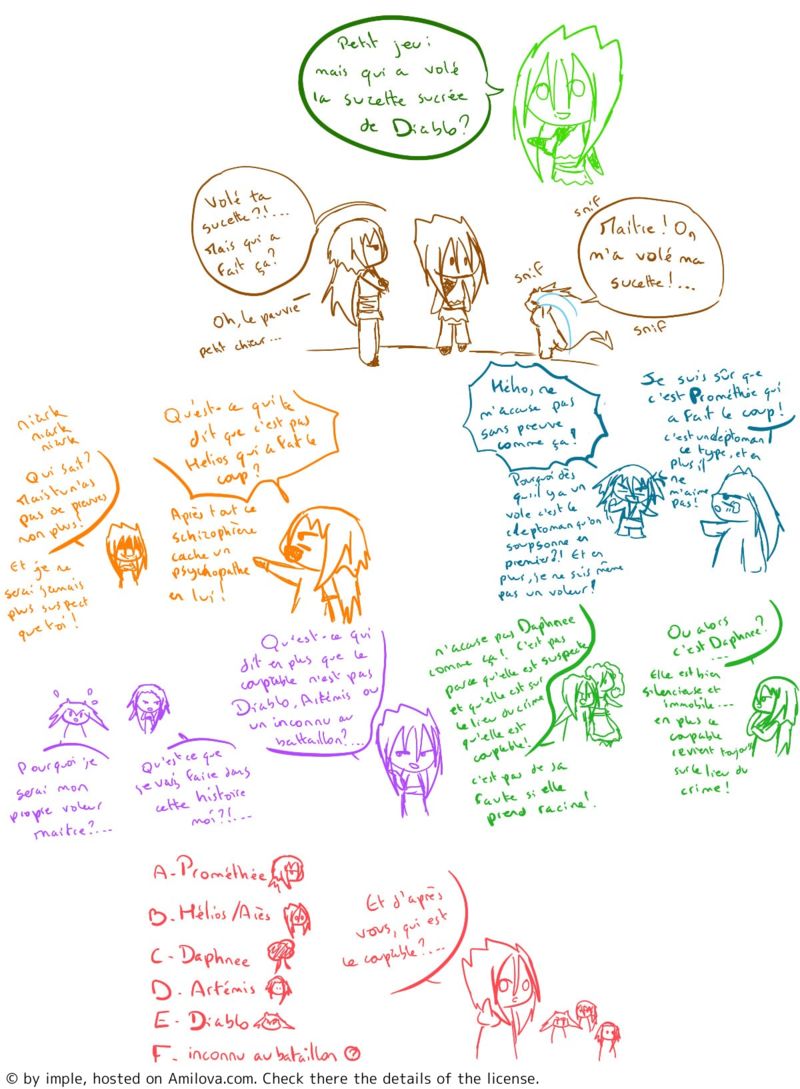 Petit jeu :
mais qui a volé
la sucette sucrée
de Diablo?
Volé ta
sucette?!...
Mais qui a
fait ça?
Oh, le pauvre
petit chieur...
snif
Maître! On
m'a volé ma
sucette!...
snif
snif
niark
niark
niark
Qui sait?
Mais tu n'as
pas de preuves
non plus!
Et je ne
serai jamais
plus suspect
que toi!
Qu'est-ce qui te
dit que c'est pas
Hélios qui a fait le
coup?
Après tout ce
schizophrène
cache un
psychopathe
en lui!
Hélio, ne
m'accuse pas
sans preuve
comme ça!
Pourquoi dès
qu'il y a un
vole c'est le
cleptoman qu'on
soupsonne en
premier?! Et en
plus, je ne suis même
pas un voleur!
Je suis sûr que
c'est Prométhée qui
a fait le coup!
c'est un cleptoman
ce type, et en
plus il
ne
m'aime
pas!
Qu'est-ce qui
dit en plus que le
coupable n'est pas
Diablo, Artémis ou
un inconnu au
battaillon?...
Pourquoi je
serai mon
propre voleur
maitre?...
Qu'est ce que
je vais faire dans
cette histoire
moi?!!...
n'accuse pas Daphnee
comme ça! C'est pas
parce qu'elle est suspecte
et qu'elle est sur
le lieu du crime
qu'elle est
coupable!
c'est pas de sa
faute si elle
prend racine!
Ou alors
c'est Daphnee?
...
Elle est bien
silencieuse et
immobile...
en plus le
coupable
revient toujours
sur le lieu du
crime!
A-Prométhée
B-Hélios/Ariès
C-Daphnee
D-Artémis
E-Diablo
F-inconnu au bataillon
Et d'après
vous, qui est
le coupable?...
© by imple, hosted on Amilova.com. Check there the details of the license.